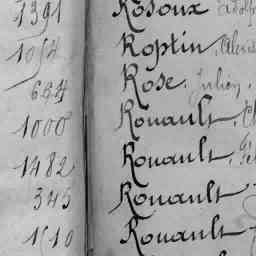 1391 Rosoux Adolp
1054 Roptin, Alexis
624 Rose, Julien,
1000 Rouault, Ch
1482 Rouault, Fé
345 Rouault
1510 Rouault